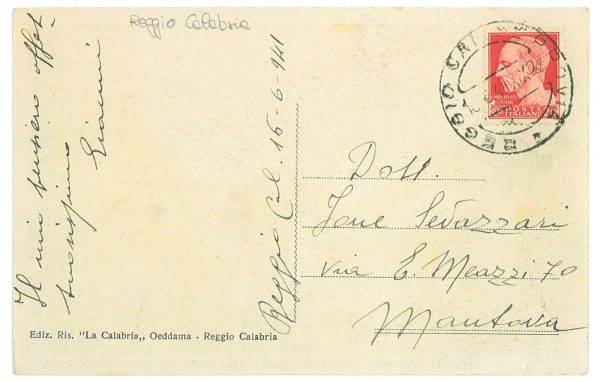 Reggio Calabria
Il mio pensiero affet-
tuosissimo
Gianni
Reggio Cal. 15-6-941
REGGIO CAL
POSTE
ITALIANE
Dott.
Via E. Meazzi 70
Mantova
Ediz. Ris. "La Calabria,, Oeddama - Reggio Calabria